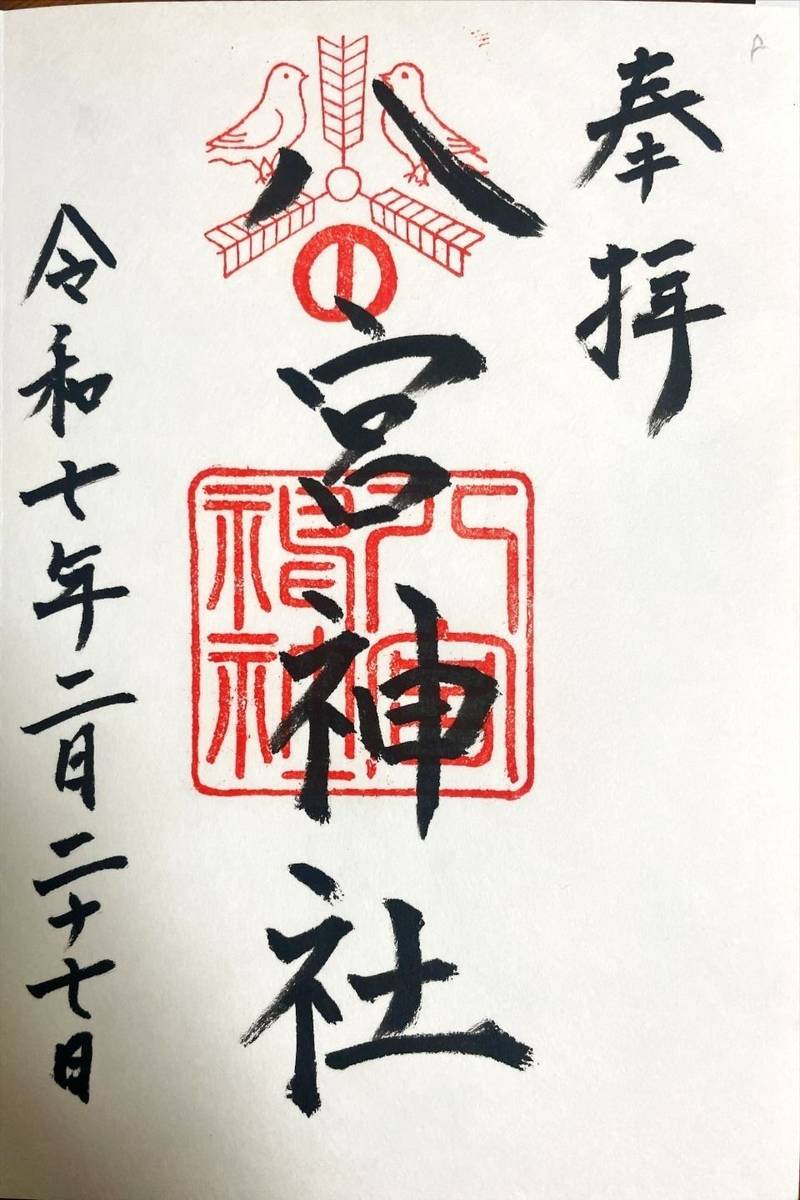 奉拝
八宮神社
八宮神社
令和七年二月二十七日